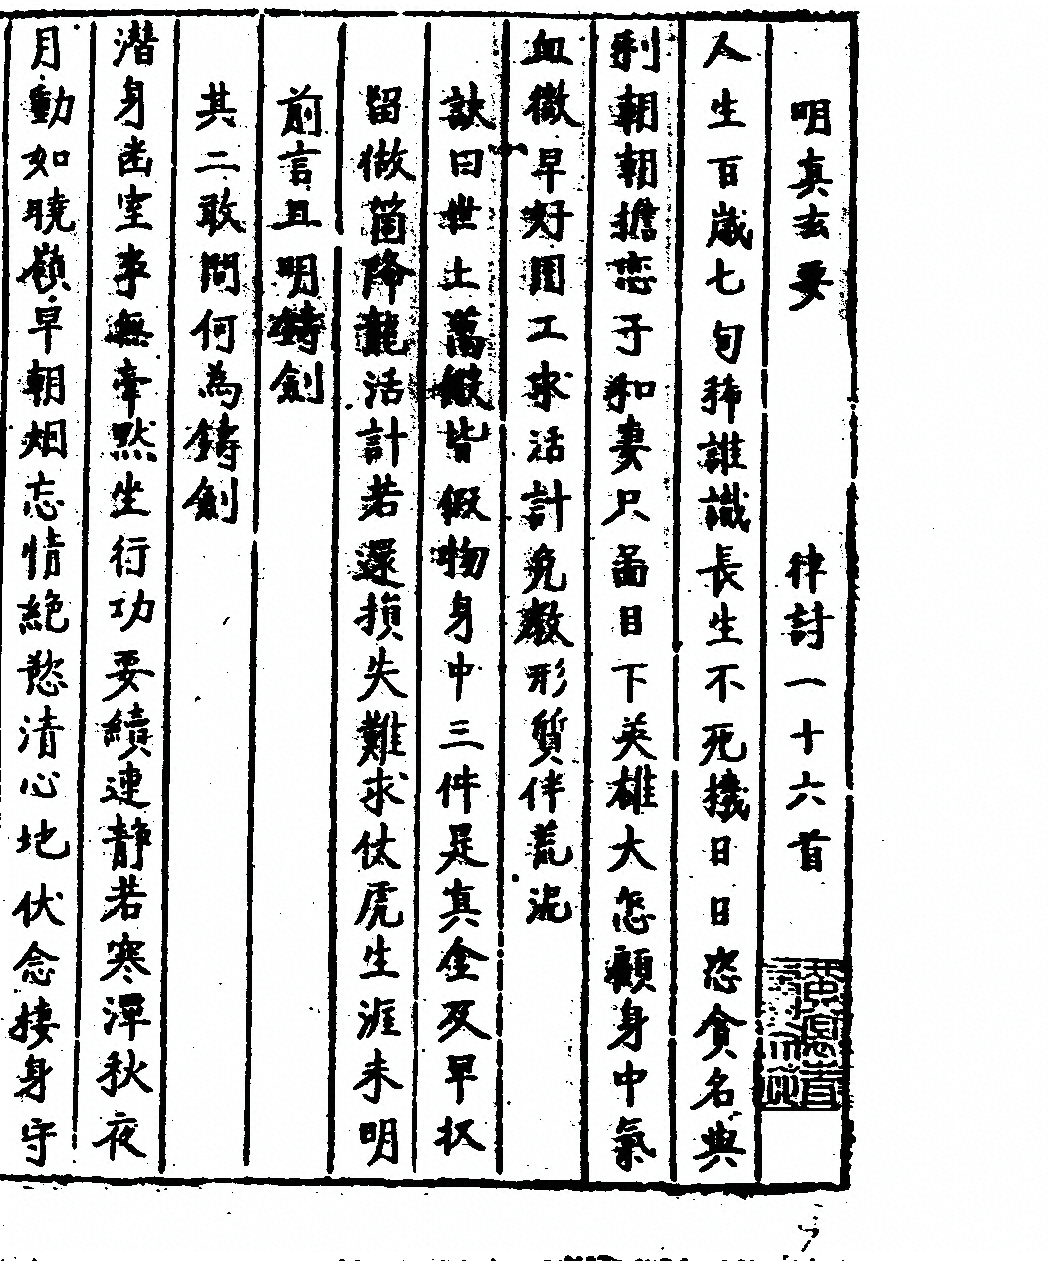 明真玄要　律詩一十六首
人生百歲七旬稀誰識長生不死機日日恣貪名與
利朝朝擔恋子和妻只啚目下英雄大怎顧身中氣
血微早好用工求活計免敎形質伴荒泥
訣曰世上萬般皆假物身中三件是真金及早扠
留做箇降龍活計若還損失難求伏虎生涯未明
前言且明鑄劍
其二敢問何為鑄劍
潛身凼室事無牽黙坐行功要續連靜若寒潭秋夜
月動如曉嶺早朝烟忘情絕慾清心地伏念捿身守